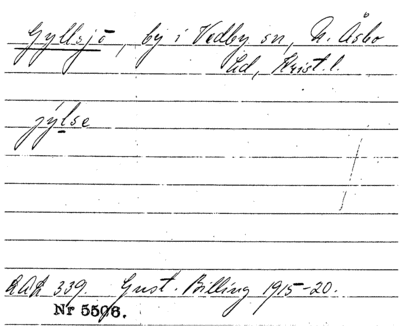 Gyllsjö, by i Vedby sn, N. Åsbo
hd, Krist. l.
jylse
RAÄ 339. Gust. Billing 1915-20.
Nr 5506.